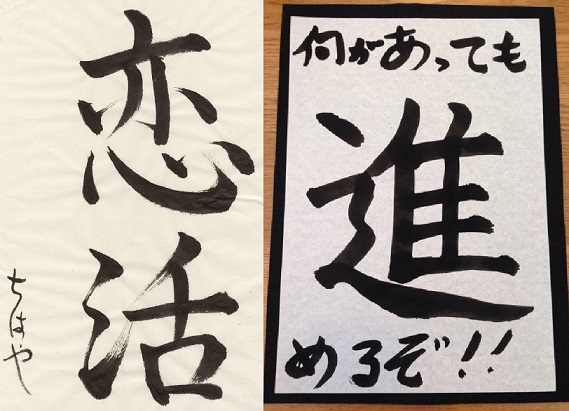 恋活
ちはや
何があっても
進
めるぞ!!